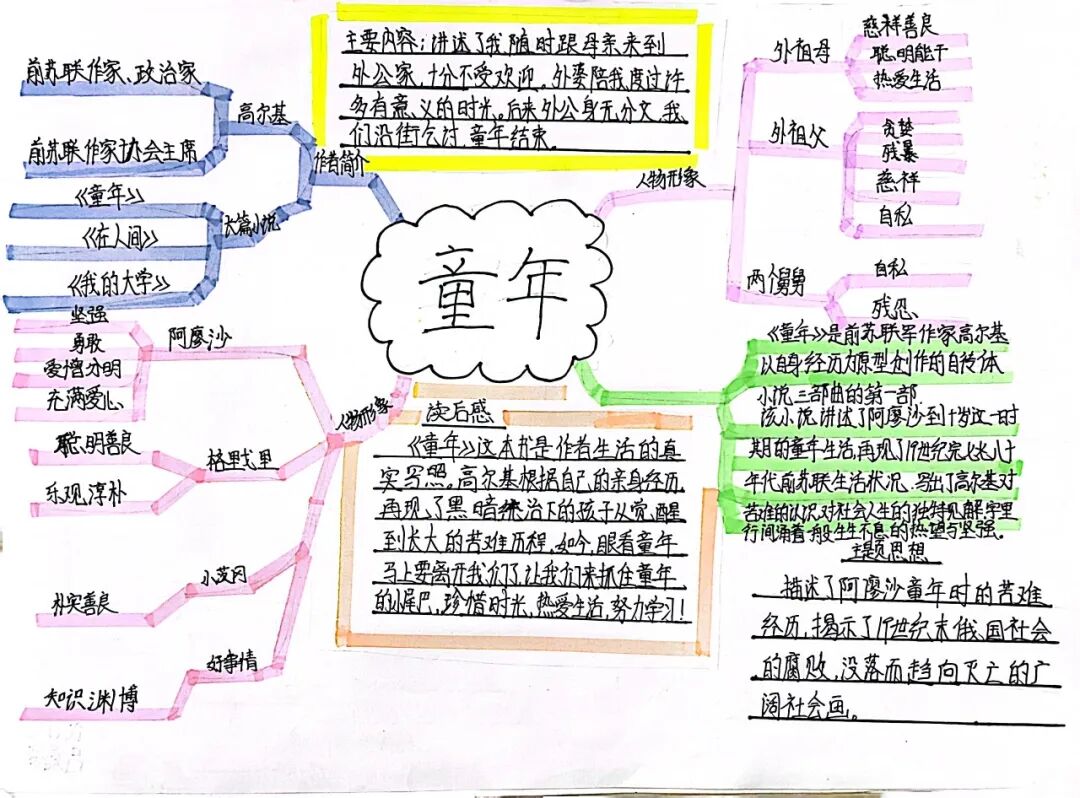 童年
主要内容:讲述了我随时跟母亲来到
外公家,十分不受欢迎。外婆陪我度过许
多有意义的时光。后来外公身无分文,我
们沿街乞讨,童年结束.
作者简介
高尔基
前苏联作家、政治家
前苏联作家协会主席
长篇小说
《童年》
《在人间》
《我的大学》
人物形象
外祖母
慈祥善良
聪明能干
热爱生活
外祖父
贪婪
残暴
慈祥
自私
两个舅舅
自私
残忍
人物形象
阿廖沙
坚强
勇敢
爱憎分明
充满爱心
格里戈里
聪明善良
乐观淳朴
小茨冈
朴实善良
好事情
知识渊博
读后感
《童年》这本书是作者生活的真
实写照。高尔基根据自己的亲身经历,
再现了黑暗统治下的孩子从觉醒
到长大的苦难历程。如今,眼看童年
马上要离开我们了,让我们来抓住童年
的小尾巴,珍惜时光,热爱生活,努力学习!
《童年》是前苏联军作家高尔基
以自身经历为原型创作的自传体
小说三部曲的第一部
该小说讲述了阿廖沙到十岁这一时
期的童年生活,再现了19世纪
年代前苏联生活状况.写出了高尔基对
苦难的认识对社会人生的独特见解字里
行间涌着一股生生不息的热望与坚强.
主题思想
描述了阿廖沙童年时的苦难
经历,揭示了19世纪末俄国社会
的腐败,没落而趋向灭亡的广
阔社会画。